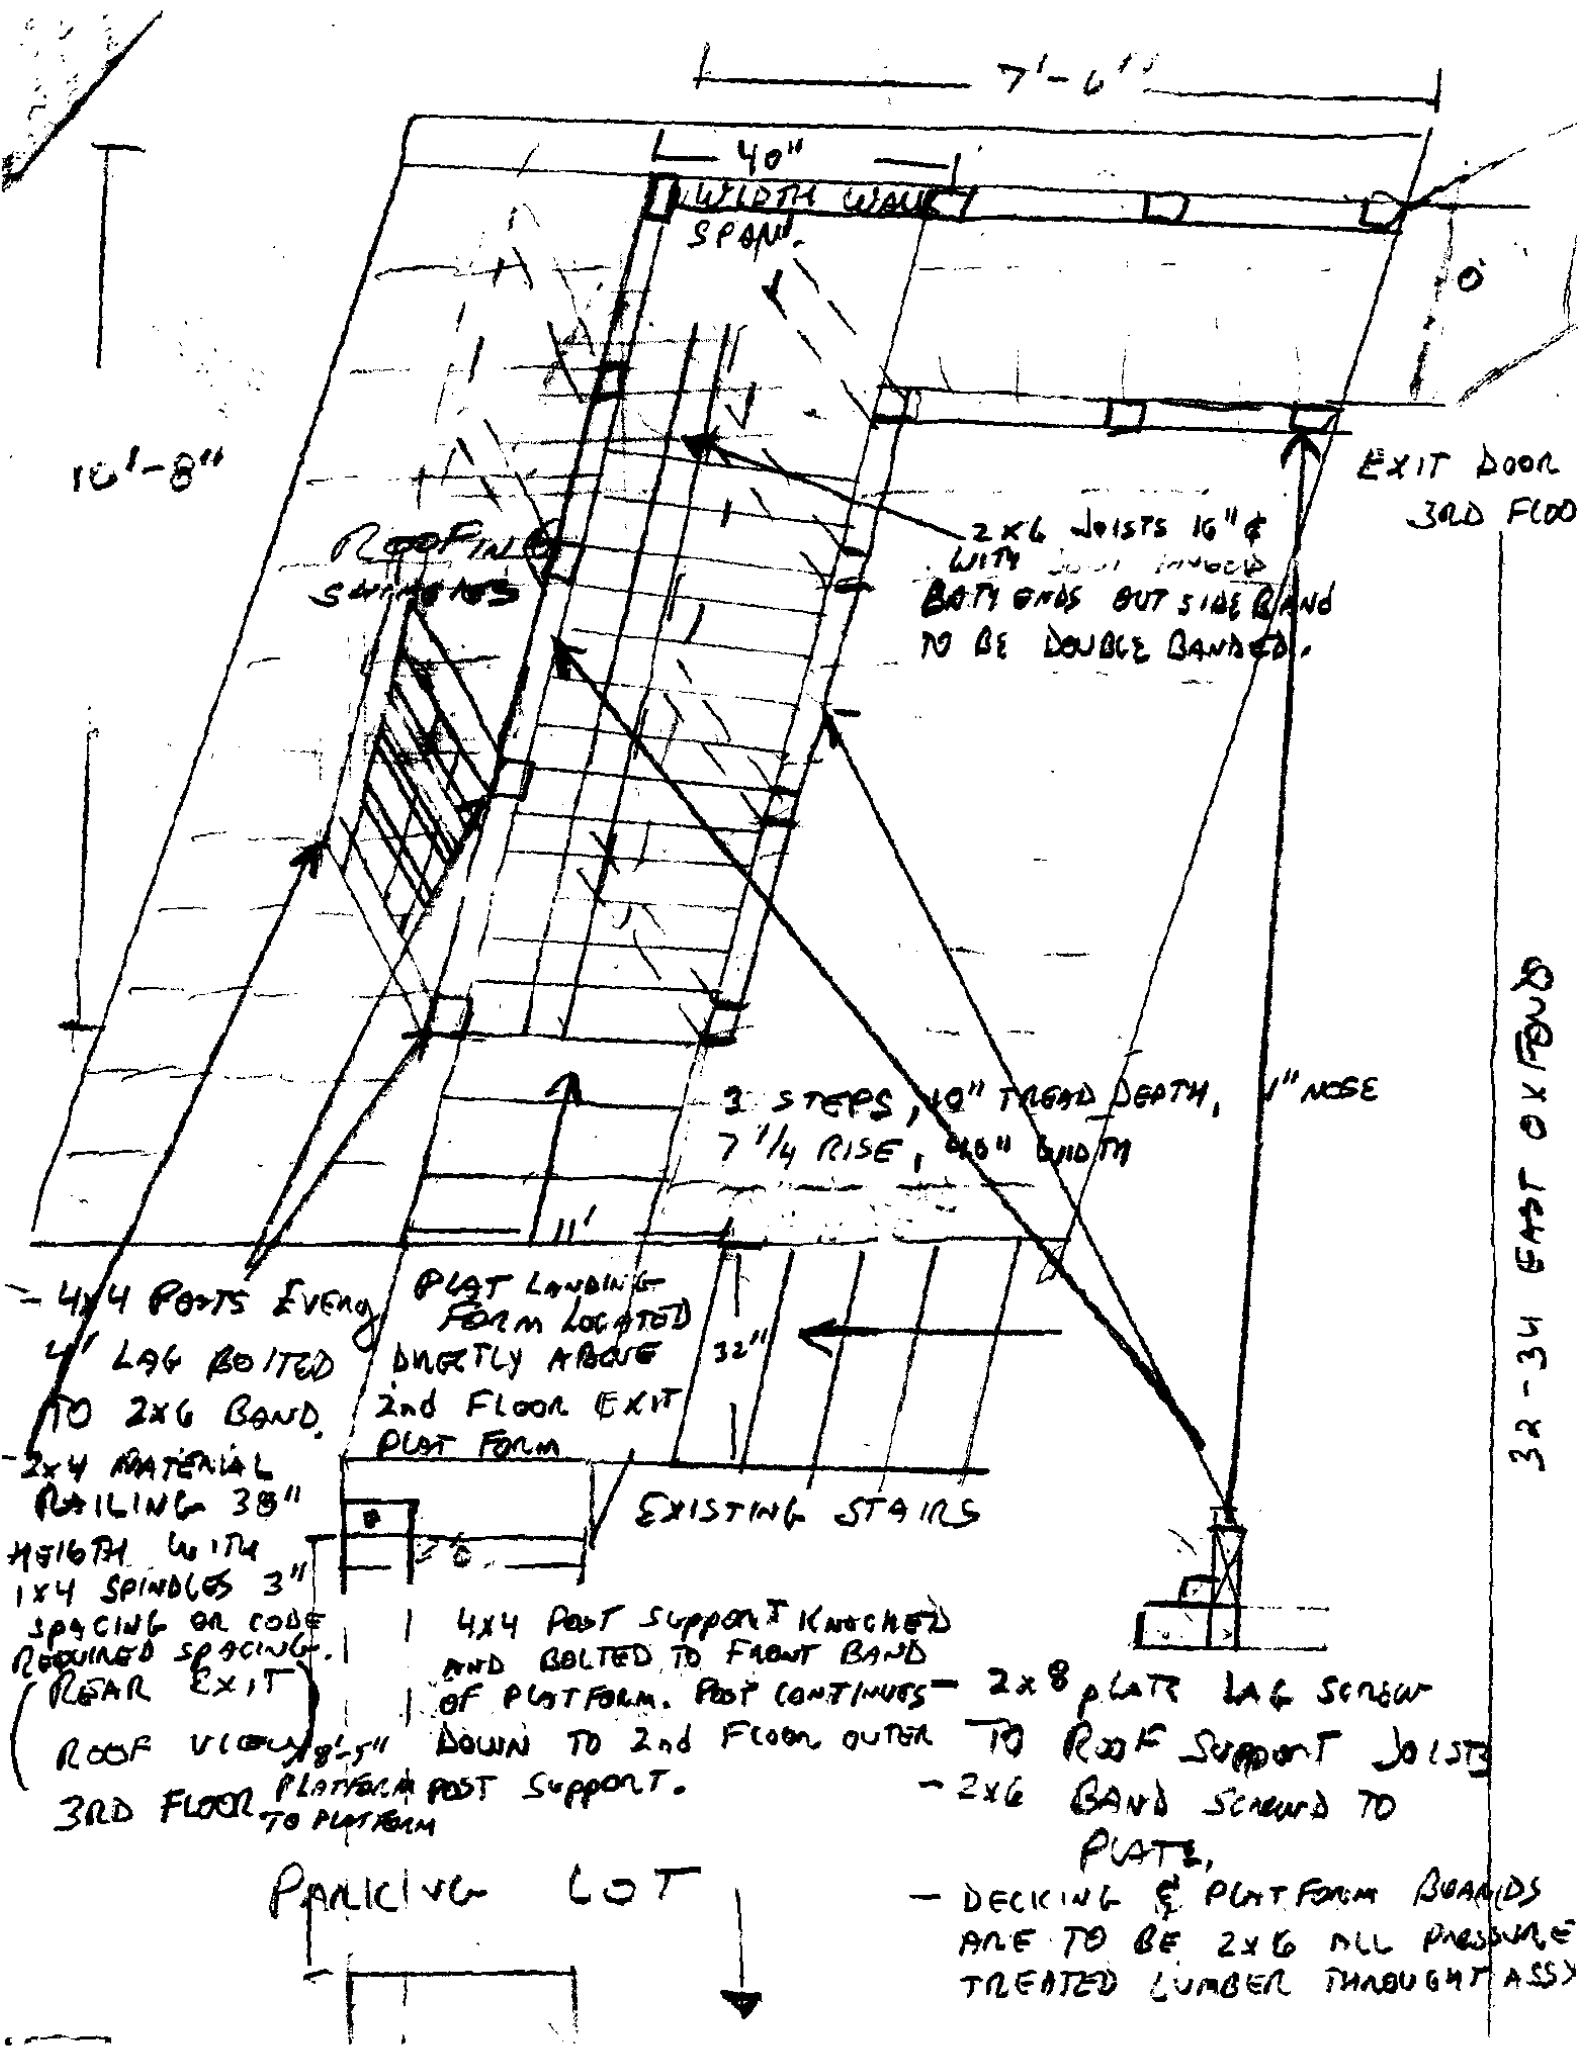 7'-6"
40"
WIDTH WALK
SPAN.
10'-8"
EXIT DOOR
3RD FLOO
ROOFING
2x6 JOISTS 16" ¢
WITH
BOTH ENDS OUT SIDE BAND
TO BE DOUBLE BANDED.
3 STEPS, 10" TREAD DEPTH, 1" NOSE
7 1/4 RISE, 40" WIDTH
11'
32-34 EAST OXFORD
- 4x4 POSTS EVERY
4' LAG BOLTED
TO 2x6 BAND.
- 2x4 MATERIAL
RAILING 38"
HEIGTH WITH
1x4 SPINDLES 3"
SPACING OR CODE
REQUIRED SPACING.
PLAT LANDING
FORM LOCATED
DIRECTLY ABOVE
2nd FLOOR EXIT
PLAT FORM
32"
EXISTING STAIRS
4x4 POST SUPPORT KNOCHED
AND BOLTED TO FRONT BAND
OF PLATFORM. POST CONTINUES
DOWN TO 2nd FLOOR OUTER
POST SUPPORT.
(REAR EXIT
ROOF VIEW)
3RD FLOOR
8'-5"
PLATFORM
TO PLATFORM
- 2x8 PLATE LAG SCREW
TO ROOF SUPPORT JOISTS
- 2x6 BAND SCREWD TO
PLATE.
- DECKING & PLATFORM BOARDS
ARE TO BE 2x6 ALL PRESSURE
TREATED LUMBER THROUGHT ASSY
PARKING LOT